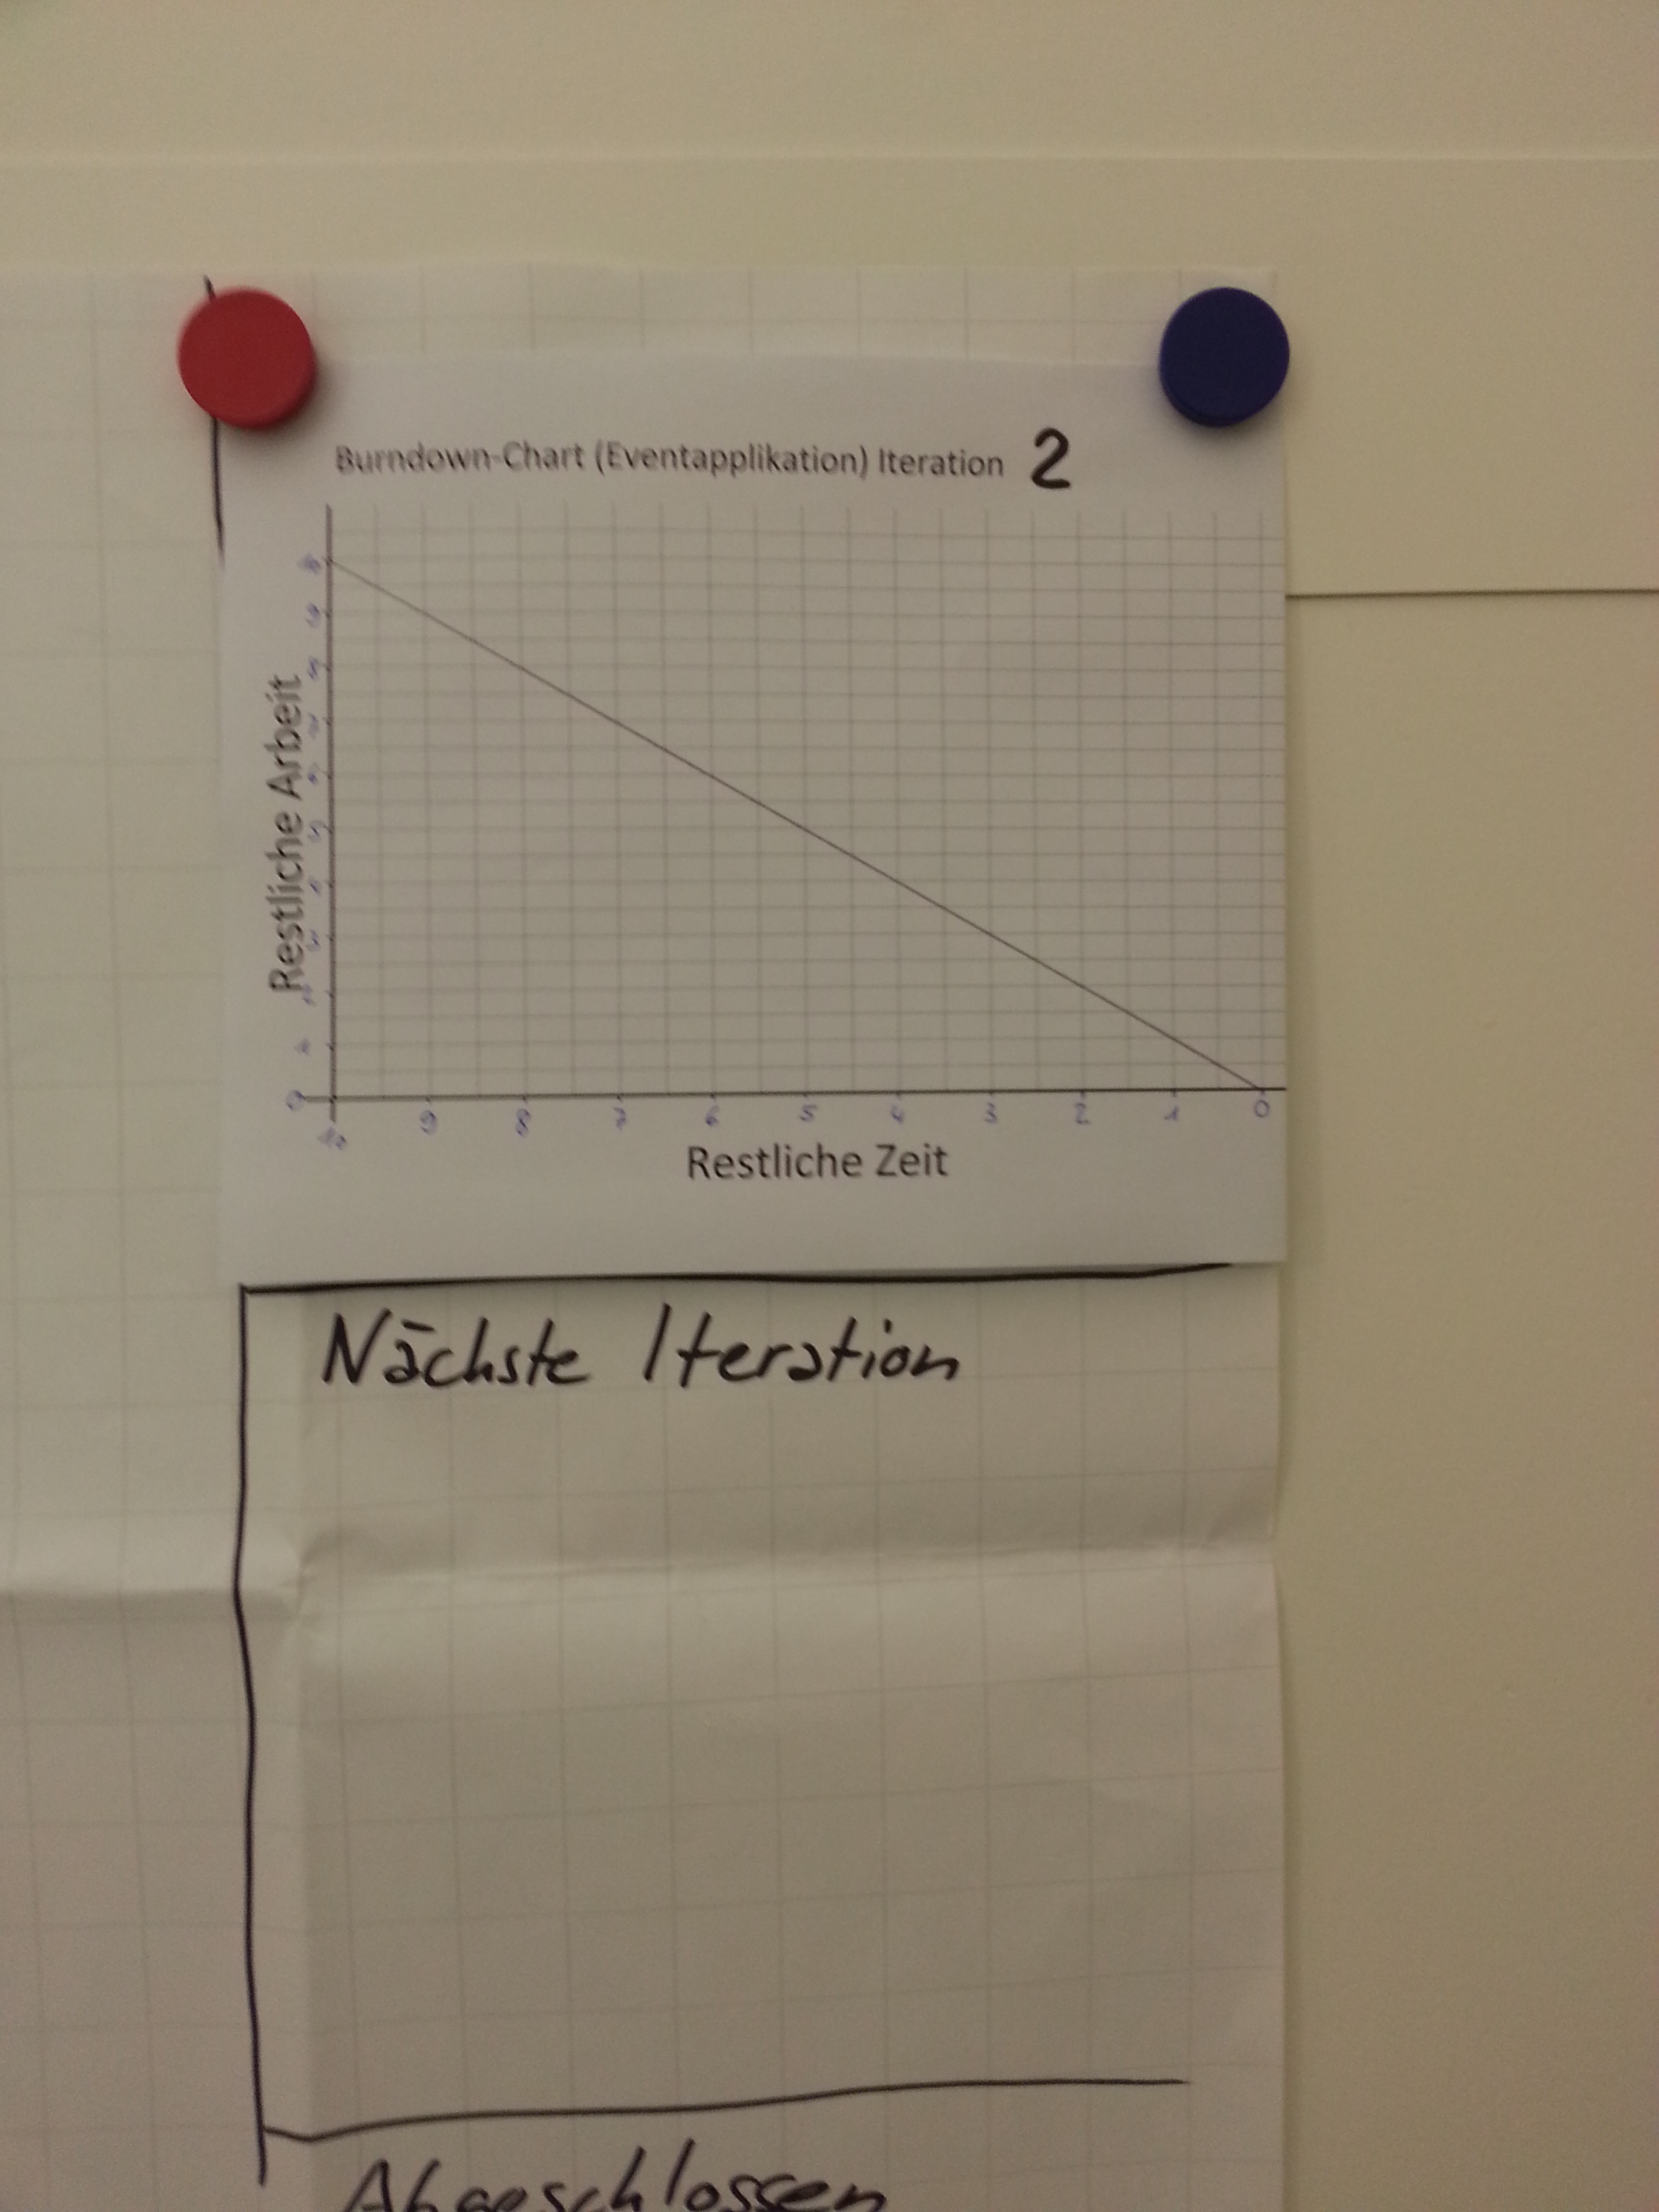 Burndown-Chart (Eventapplikation) Iteration 2
Restliche Arbeit
10
9
8
7
6
5
4
3
2
1
0
10 9 8 7 6 5 4 3 2 1 0
Restliche Zeit
Nächste Iteration
Abgeschlossen